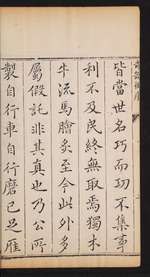 皆當世名巧而功不集事
利不及民終無取焉獨木
牛流馬膾炙至今此外多
屬假託非其真也乃公所
製自行車自行磨已足雁